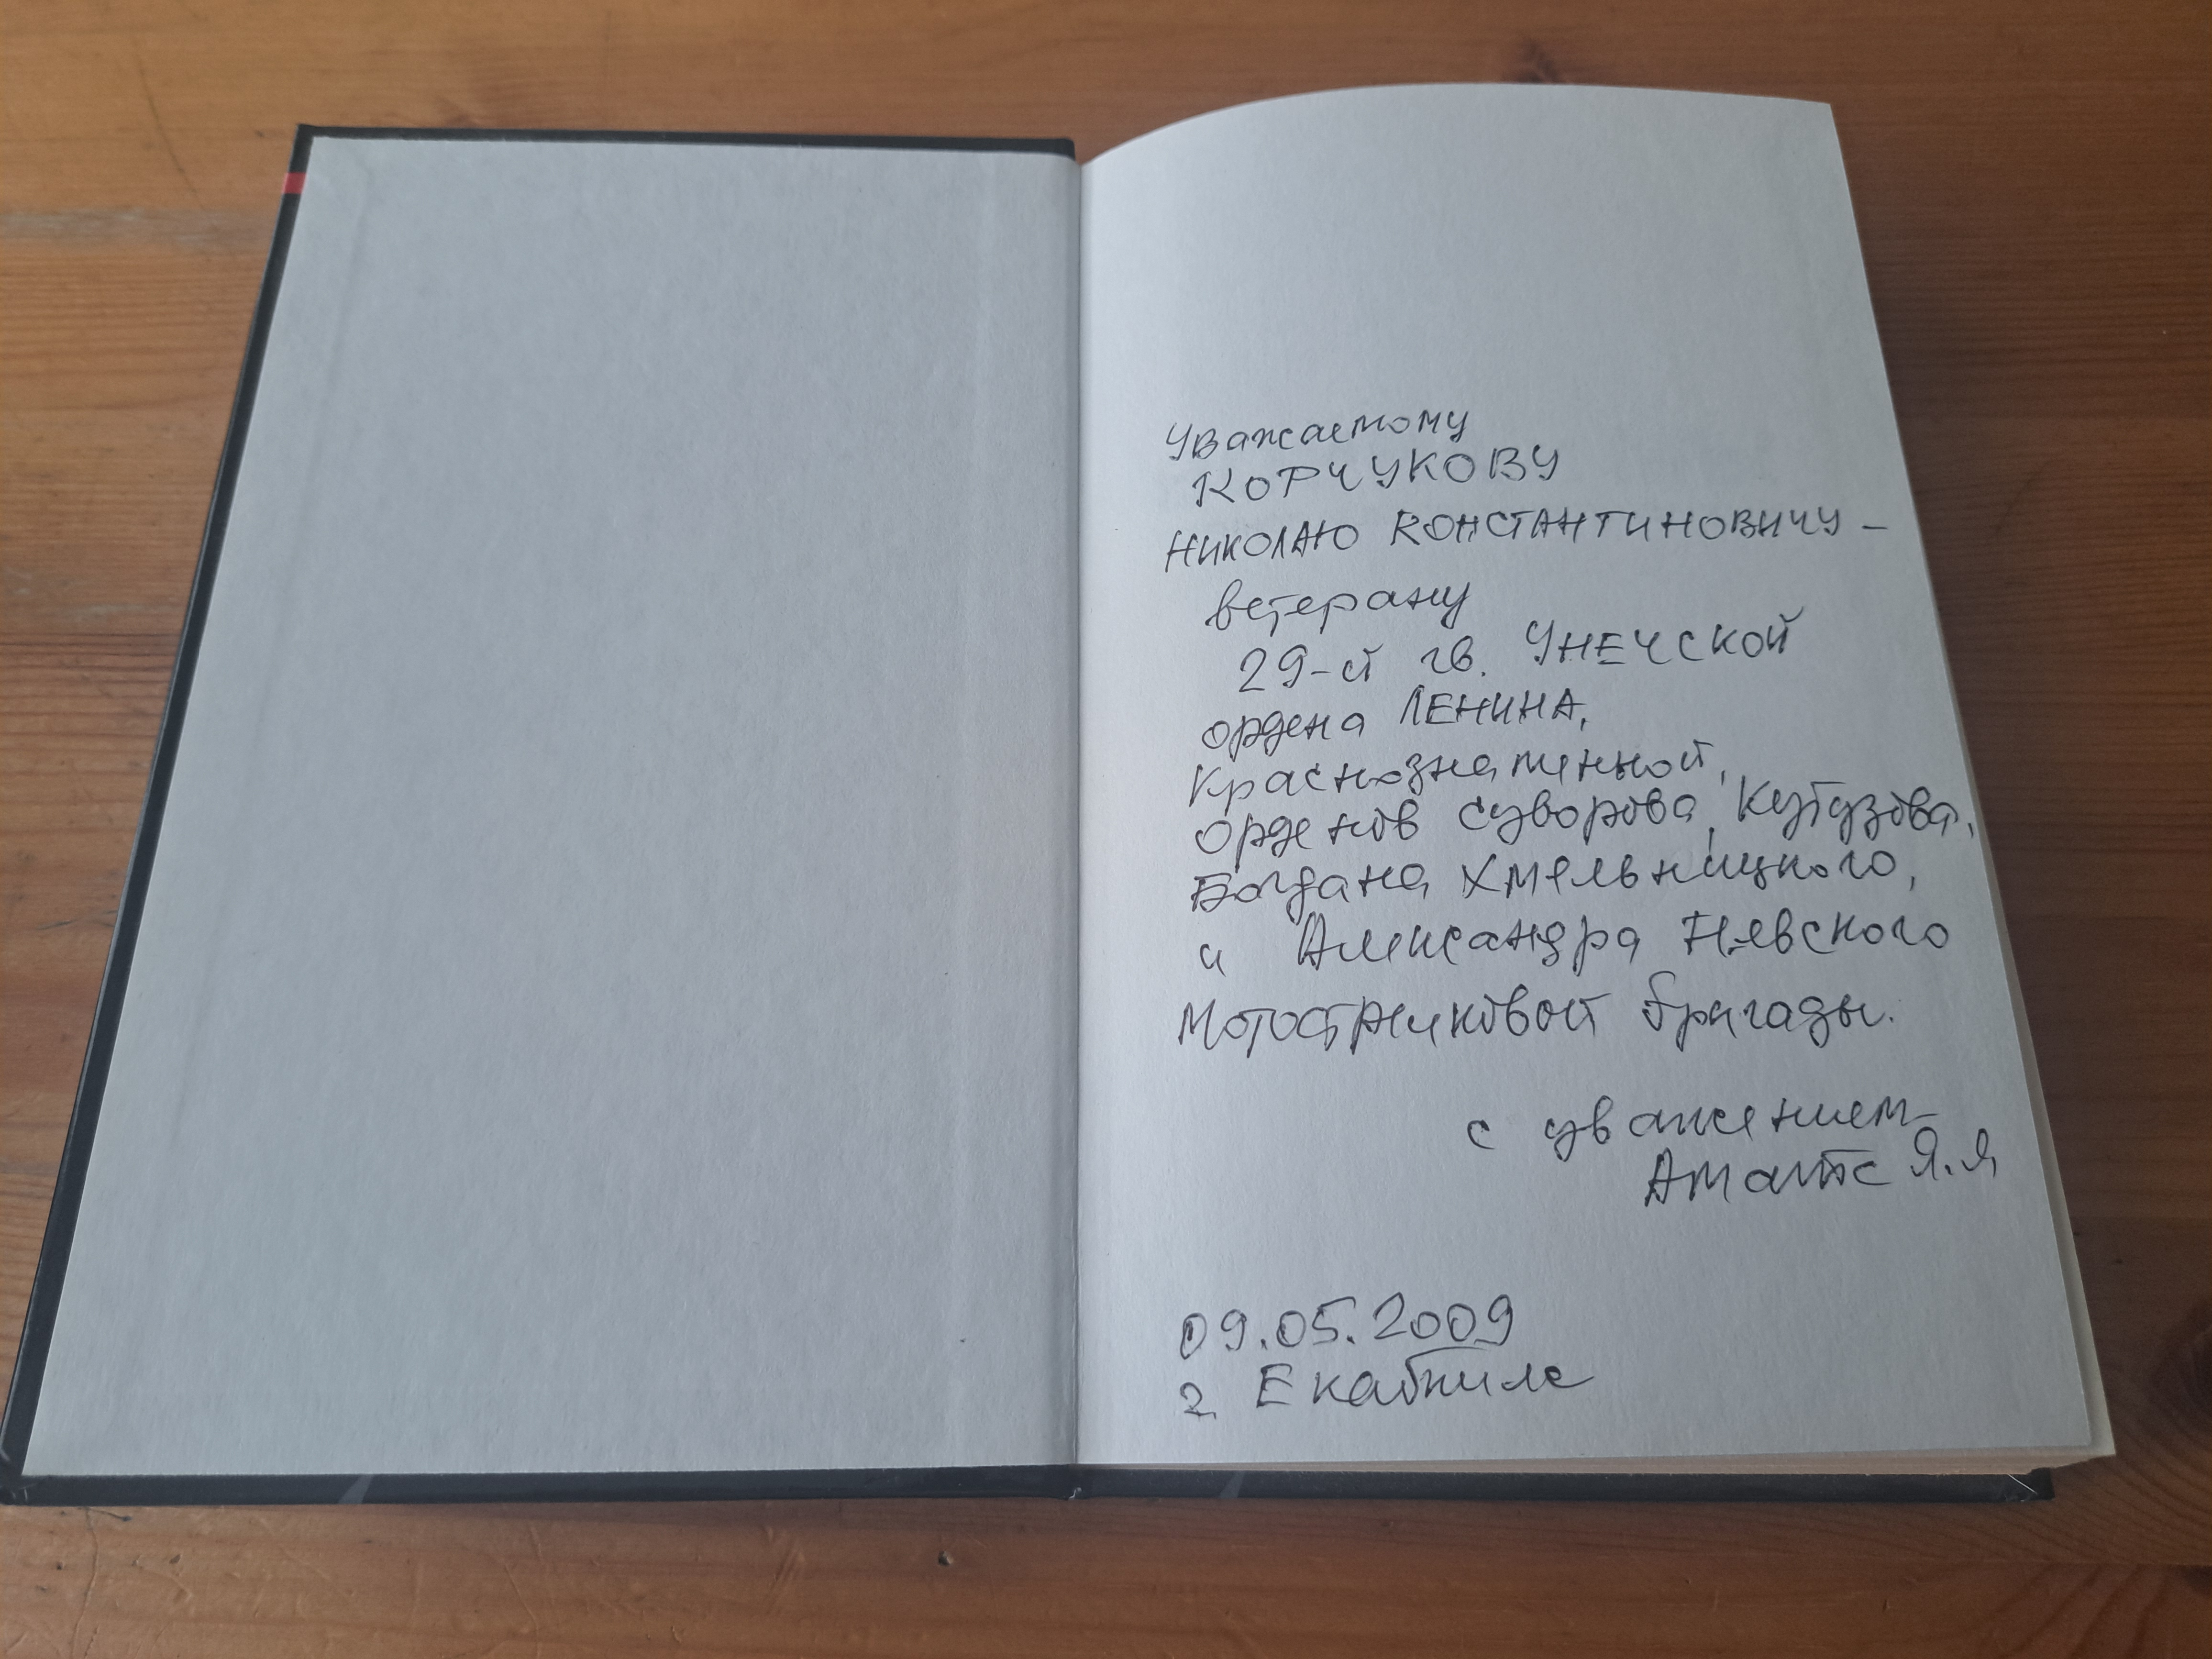 Уважаемому
КОРЧУКОВУ
НИКОЛАЮ КОНСТАНТИНОВИЧУ –
ветерану
29-й гв. УНЕЧСКОЙ
ордена ЛЕНИНА,
Краснознаменной,
Орденов Суворова, Кутузова,
Богдана Хмельницкого,
и Александра Невского
Мотострелковой бригады.
с уважением
Я.Я
09.05.2009
г Екабпилс